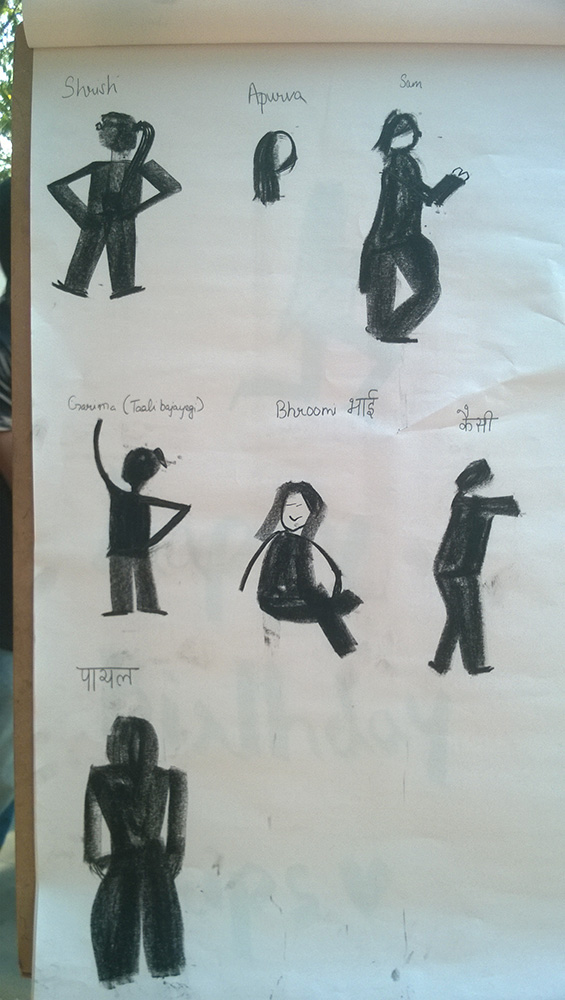 Shrishti
Apurva
Sam
Garima (Taali bajayegi)
Bhroom भाई
कैसी
पायल